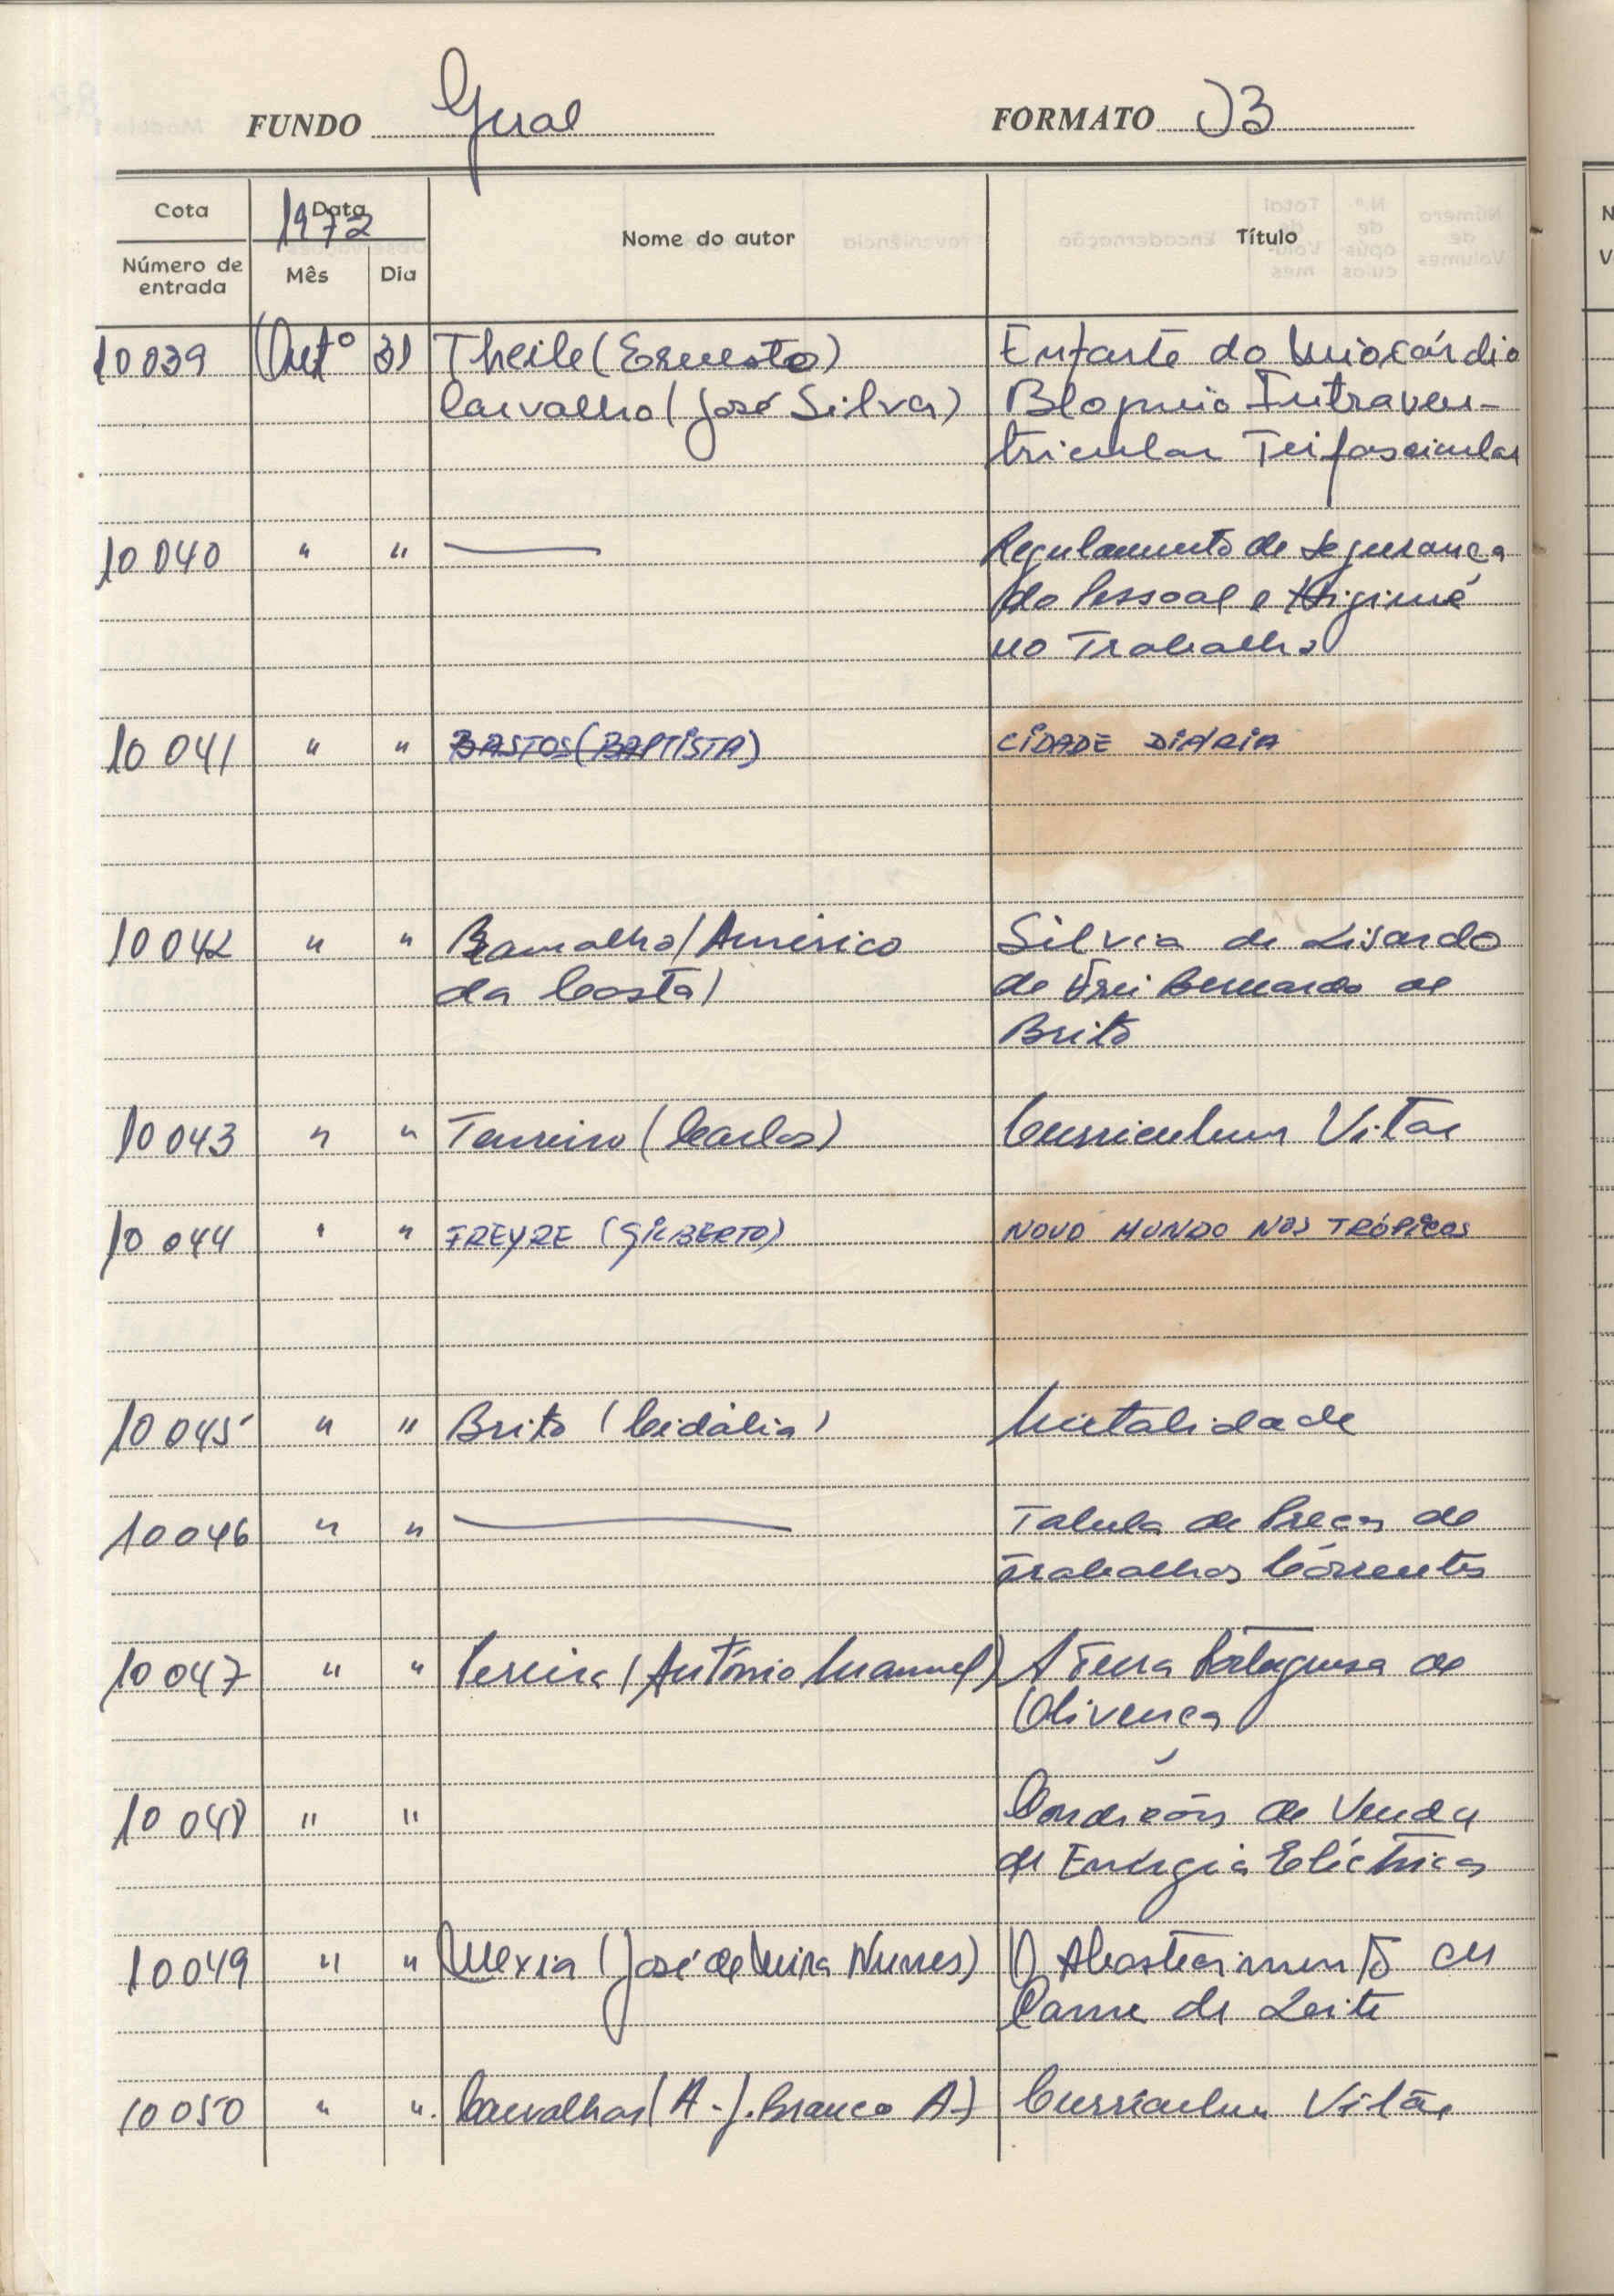 FUNDO Geral FORMATO B
Cota Data 1972 Nome do autor Título
Número de entrada Mês Dia
10 039 Outº 31 Theile (Ernesto) Enfarte do Miocárdio
Carvalho (José Silva) Bloqueio Intraven-
tricular Trifascicular
10 040 " " — Regulamento de Segurança
do Pessoal e Higiene
no Trabalho
10 041 " " BASTOS (BAPTISTA) CIDADE DIÁRIA
10 042 " " Ramalho (Américo Sílvia de Lisardo
da Costa) de Frei Bernardo de
Brito
10 043 " " (Carlos) Curriculum Vitae
10 044 " " FREYRE (GILBERTO) NOVO MUNDO NOS TRÓPICOS
10 045 " " Brito (Cidália) Natalidade
10 046 " " — Tabela de Preços de
Trabalhos Correntes
10 047 " " Pereira (António Manuel) A Terra Portuguesa de
Olivença
10 048 " " Condições de Venda
de Energia Eléctrica
10 049 " " Mexia (José de Mira Nunes) O Abastecimento em
Carne de Leite
10 050 " " (A. J. Branco A.) Curriculum Vitae